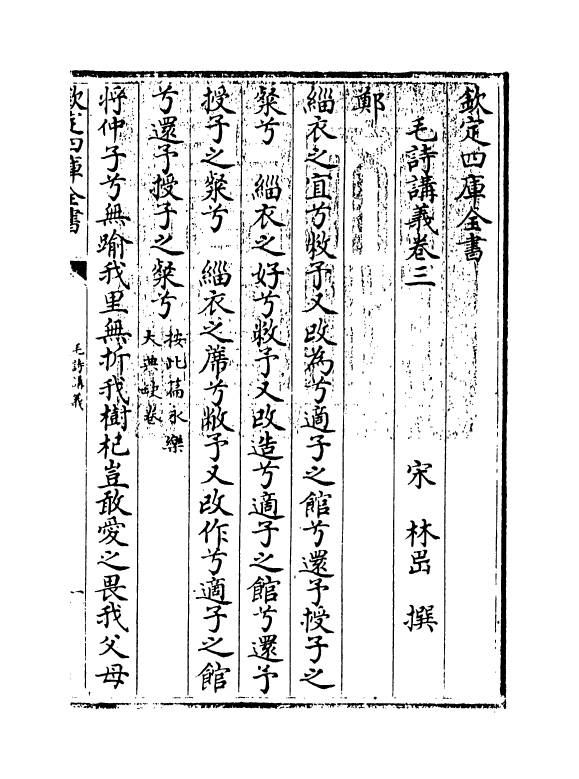 欽定四庫全書
毛詩講義卷三
宋　林岊　撰
鄭
緇衣之宜兮敝予又改為兮適子之館兮還予授子之
粲兮　緇衣之好兮敝予又改造兮適子之館兮還予
授子之粲兮　緇衣之席兮敝予又改作兮適子之館
兮還予授子之粲兮
按此篇永樂
大典缺卷
將仲子兮無踰我里無折我樹杞豈敢愛之畏我父母
欽定四庫全書
毛詩講義
一